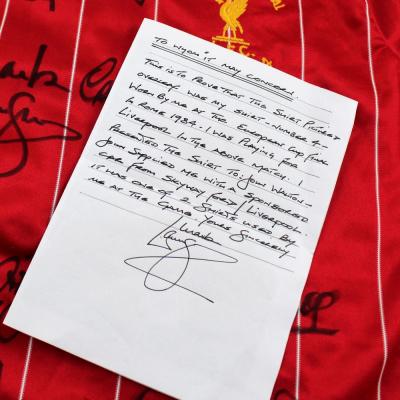 L.F.C.
TO WHOM IT MAY CONCERN.
THIS IS TO PROVE THAT THE SHIRT PICTURED
OVERLEAF WAS MY SHIRT - NUMBER 4 -
WORN BY ME AT THE EUROPEAN CUP FINAL
IN ROME 1984. I WAS PLAYING FOR
LIVERPOOL IN THE ABOVE MATCH. I
PRESENTED THE SHIRT TO: JOHN WALTON -
JOHN SUPPLIED ME WITH A SPONSORED
CAR FROM SKYWAY FORD / LIVERPOOL.
IT WAS ONE OF 2 SHIRTS USED BY
ME AT THE GAME YOURS SINCERELY
Mark